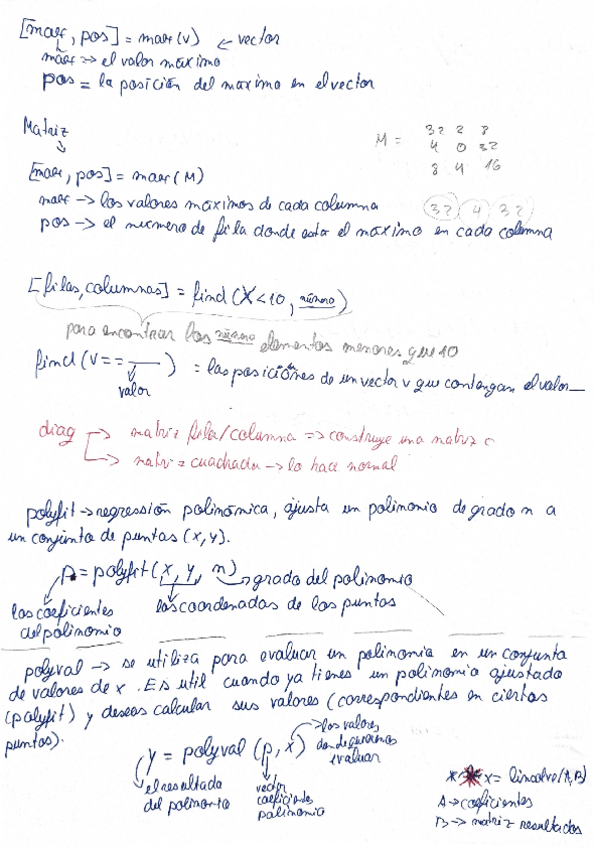 [max, pos] = max(v) ← vector
max → el valor maximo
pos = la posición del maximo en el vector
Matriz
M = 32 2 8
4 0 32
8 4 16
[max, pos] = max(M)
max → los valores máximos de cada columna 32 4 32
pos → el numero de fila donde esta el máximo en cada columna
[filas, columnas] = find(X<10, número)
para encontrar los número elementos menores que 10
find(v==___) = las posiciones de un vector v que contengan el valor_
valor
diag → matriz fila/columna => construye una matriz c
→ matriz cuadrada → lo hace normal
polyfit → regressión polinómica, ajusta un polinomio de grado n a
un conjunto de puntos (x,y).
p = polyfit(x, y, n) → grado del polinomio
los coeficientes las coordenadas de los puntos
del polinomio
polyval → se utiliza para evaluar un polinomio en un conjunto
de valores de x. Es util cuando ya tienes un polinomio ajustado
(polyfit) y deseas calcular sus valores (correspondientes en ciertos
puntos).
y = polyval (p, x) → los valores
donde queremos
evaluar
el resultado
del polinomio
vector
coeficientes
polinomio
x = linsolve(A,B)
A → coeficientes
B → matriz resultados